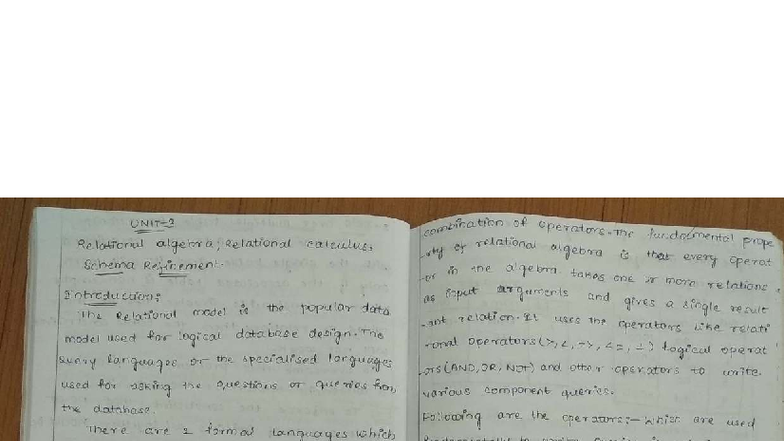 UNIT-3
Relational algebra; Relational calculus,
Schema Refinement.
Introduction:
The Relational model is the popular data
model used for logical database design. The
query languages or the specialised languages
used for asking the questions or queries from
the database.
There are 2 formal languages which
combination of operators. The fundamental prope
-rty of relational algebra is that every operat
-or in the algebra takes one or more relations
as input arguments and gives a single result
-ant relation. It uses the operators like relati
-onal operators (>, <, =) logical operat
-ors (AND, OR, NOT) and other operators to write
various component queries.
Following are the operators:- which are used